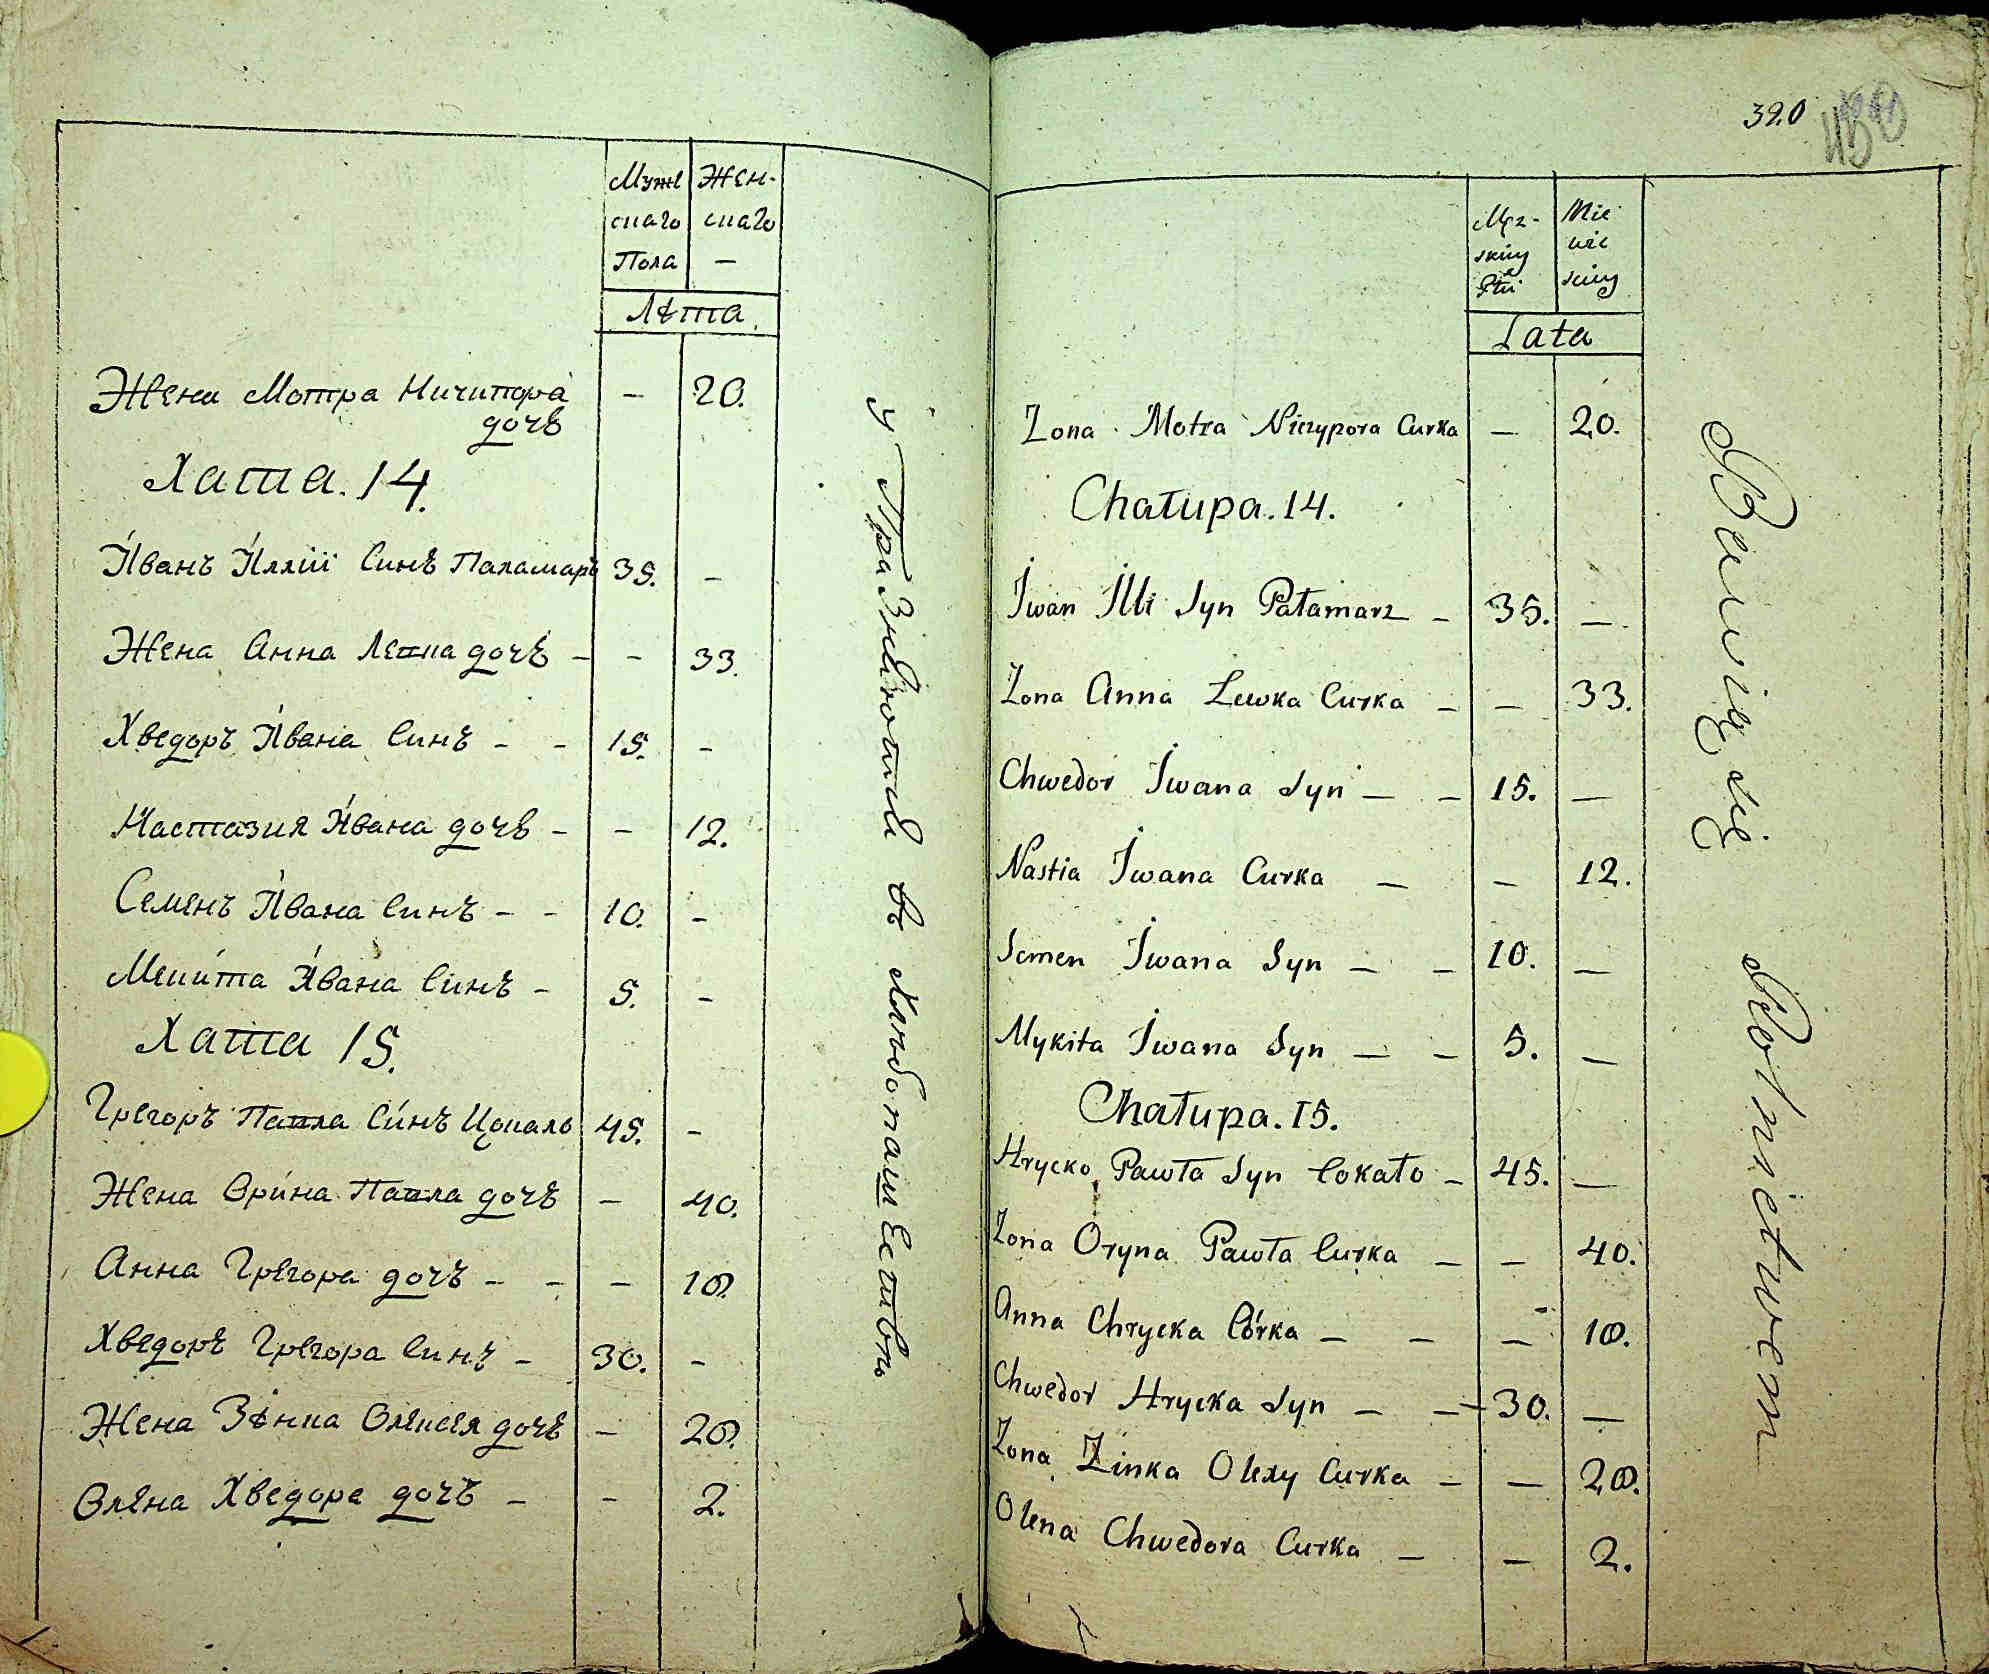 Муже
скаго
Пола
Жен-
скаго
—
Лѣта
Жена Мотра Ничипора — 20.
дочъ
Хата. 14.
Иванъ Илліи Синъ Паламаръ 35. —
Жена Анна Левка дочъ — — 33.
Хведоръ Ивана Синъ — — 15. —
Настазия Ивана дочъ — — 12.
Семенъ Ивана Синъ — — 10. —
Микита Ивана Синъ — 5. —
Хата 15.
Грегоръ Павла Синъ Цокало 45. —
Жена Орина Павла дочъ — 40.
Анна Грегора дочъ — — — 18.
Хведоръ Грегора Синъ — 30. —
Жена Зѣнка Олексея дочъ — 28.
Олена Хведора дочъ — — 2.
въ Хлѣбопашествѣ
320
Męz-
skiey
Płci
Nie
wie
sciey
Lata
Zona Motra Niczypora Curka — 20.
Chałupa. 14.
Iwan Illi Syn Pałamarz — 35. —
Zona Anna Lewka Curka — — 33.
Chwedor Iwana Syn — — 15. —
Nastia Iwana Curka — — 12.
Semen Iwana Syn — — 10. —
Mykita Iwana Syn — — 5. —
Chałupa. 15.
Hrycko Pawła Syn Cokało — 45. —
Zona Oryna Pawła Curka — — 40.
Anna Chrycka Córka — — — 18.
Chwedor Hrycka Syn — — 30. —
Zona Zinka Olexy Curka — — 28.
Olena Chwedora Curka — — 2.
Bawią się Rolnictwem